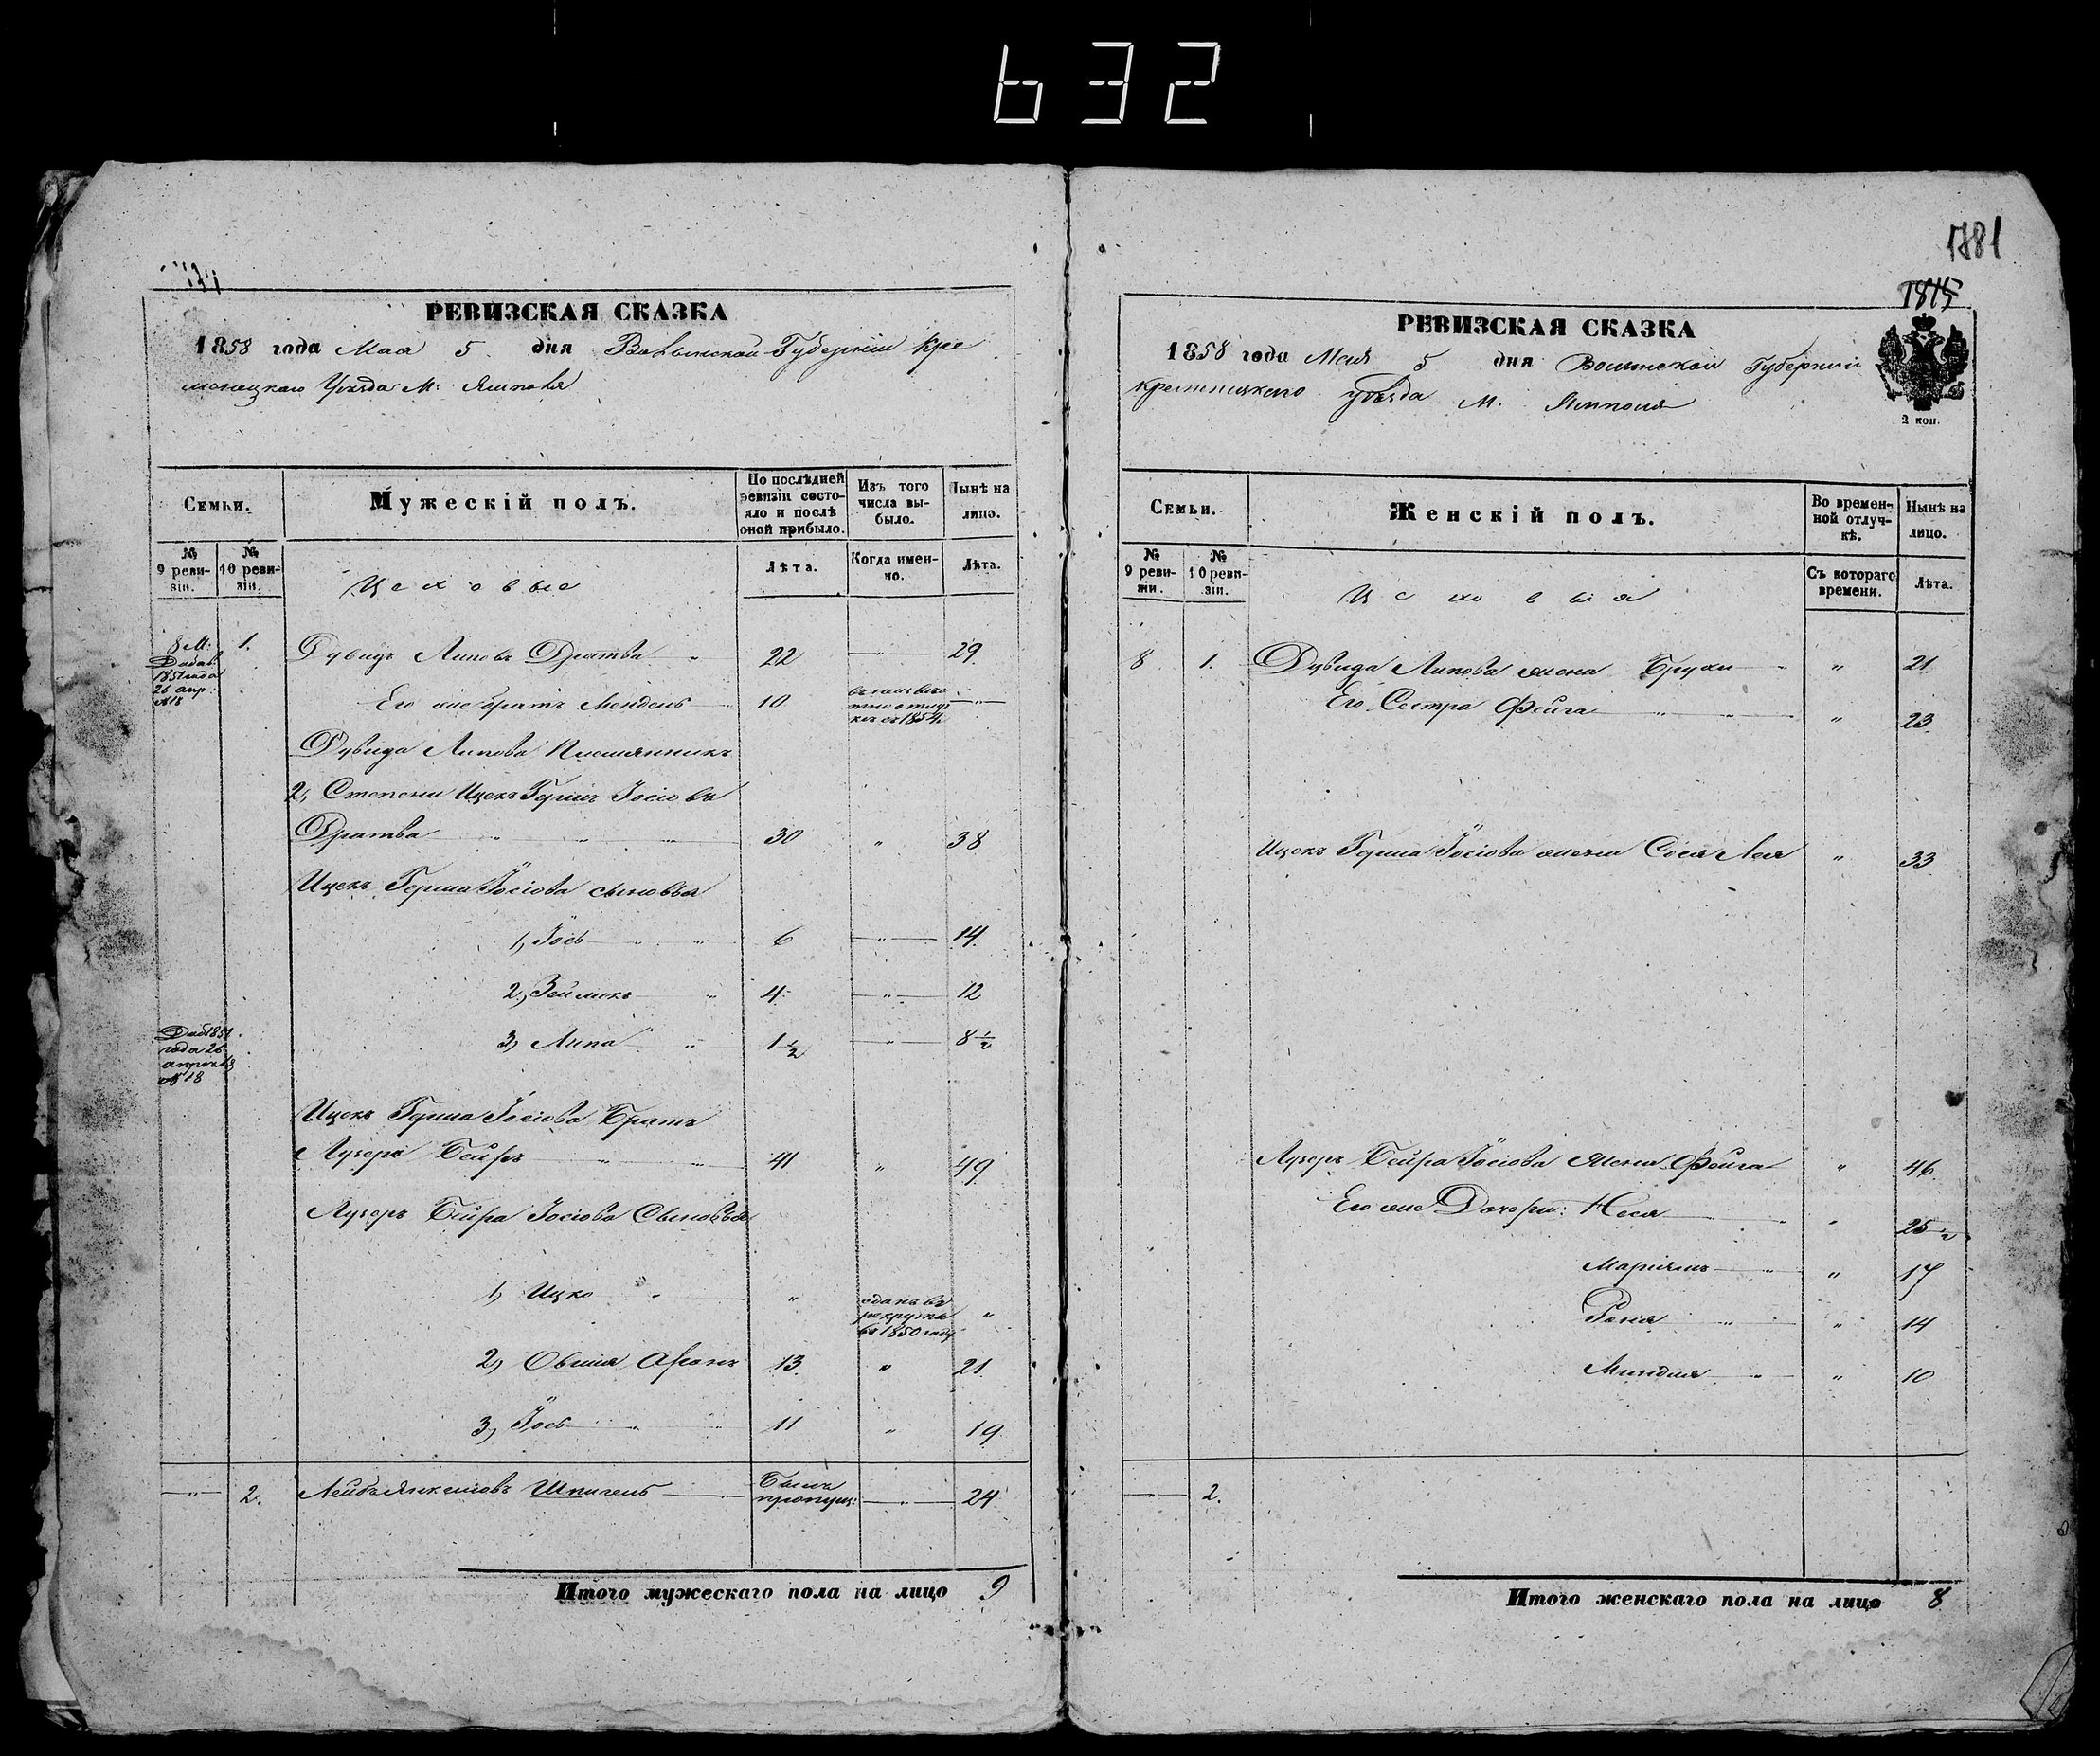 632
1881
1815
РЕВИЗСКАЯ СКАЗКА
1858 года Мая 5 дня Волынской Губерніи Кре
менецкаго Уѣзда М: Ямполя
Семьи.
Мужескій полъ.
По послѣдней ревизіи состояло и послѣ оной прибыло.
Изъ того числа выбыло.
Нынѣ на лицо.
№ 9 ревизіи.
№ 10 ревизіи.
Цеховые
Лѣта.
Когда именно.
Лѣта.
8 М: 1. Дувидъ Липовъ Дратва " 22 " 29.
Добав. 1851 года 26 апр: №18
Его же братъ Мендель 10 отлучкѣ съ 1854 "
Дувида Липова Племянникъ
2, Степени Ицекъ Гершъ Іосіовъ
Дратва " " " 30 " 38
Ицекъ Герша Іосіова сыновья
1, Іось " " 6 " 14.
2, Зейликъ " 4. " 12
Доб 1851 года 26 апрѣля №18
3, Липа " 1 1/2 " 8 1/2
Ицекъ Герша Іосіова Братъ
Лузеръ Бейръ " " 41 " 49
Лузеръ Бейра Іосіова Сыновья
1, Ицко " " отданъ въ рекруты въ 1850 году "
2, Овшія Аронъ 13. " 21.
3, Іось " " 11 " 19.
" 2. Лейба Янкелевъ Шпигель " Былъ пропущ: " 24
Итого мужескаго пола на лицо 9
РЕВИЗСКАЯ СКАЗКА
1858 года Мая 5 дня Волынской Губерніи
Кременецкаго уѣзда М. Ямполя
2 коп.
Семьи.
Женскій полъ.
Во временной отлучкѣ.
Нынѣ на лицо.
№ 9 ревизіи.
№ 10 ревизіи.
Цеховыя
Съ котораго времени.
Лѣта.
8 1. Дувида Липова жена Брухи " " 21
Его Сестра Фейга " " " 23.
Ицекъ Герша Іосіова жена Сося Лея " 33
Лузеръ Бейра Іосіова жена Фейга " 46.
Его же Дочери: Неся " " 25 1/2
Маріямъ " " 17
Рохля " " 14
Миндля " " 10
" 2.
Итого женскаго пола на лицо 8